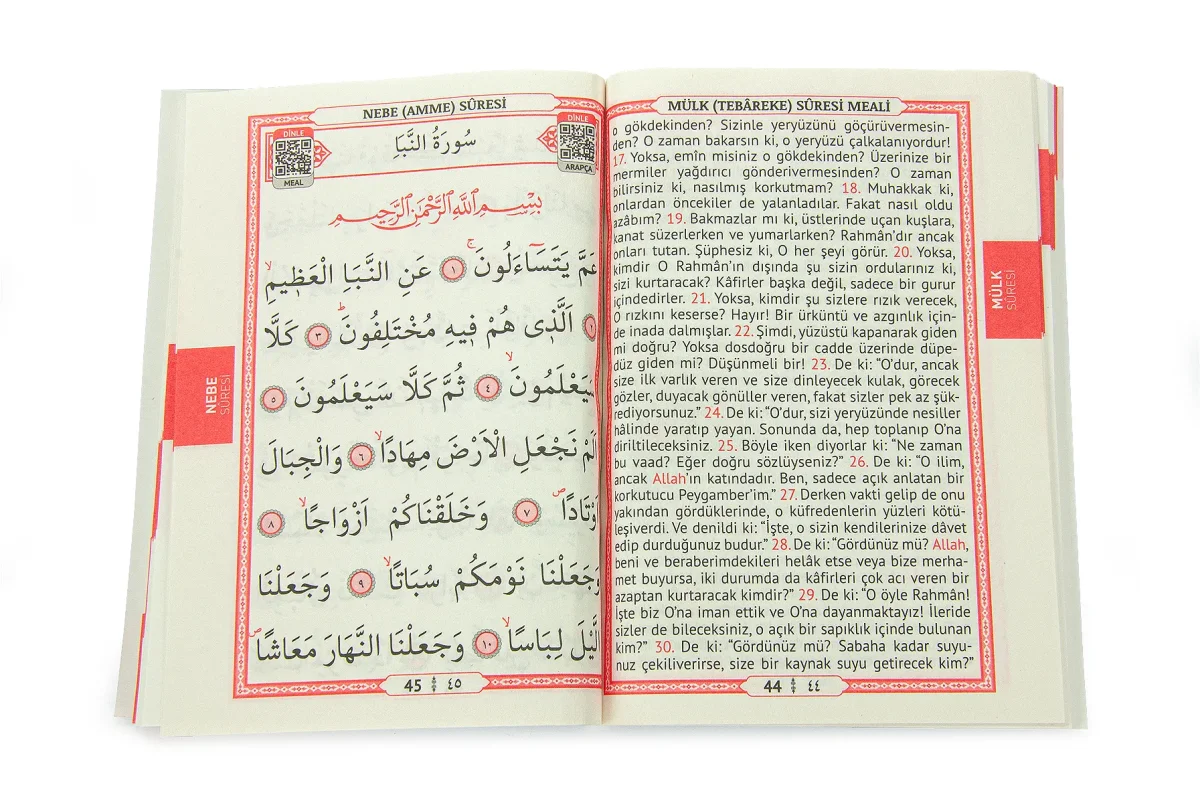 MÜLK (TEBÂREKE) SÛRESİ MEALİ
o gökdekinden? Sizinle yeryüzünü göçürüvermesin-
den? O zaman bakarsın ki, o yeryüzü çalkalanıyordur!
17. Yoksa, emîn misiniz o gökdekinden? Üzerinize bir
mermiler yağdırıcı gönderivermesinden? O zaman
bilirsiniz ki, nasılmış korkutmam? 18. Muhakkak ki,
onlardan öncekiler de yalanladılar. Fakat nasıl oldu
azâbım? 19. Bakmazlar mı ki, üstlerinde uçan kuşlara,
kanat süzerlerken ve yumarlarken? Rahmân’dır ancak
onları tutan. Şüphesiz ki, O her şeyi görür. 20. Yoksa,
kimdir O Rahmân’ın dışında şu sizin ordularınız ki,
sizi kurtaracak? Kâfirler başka değil, sadece bir gurur
içindedirler. 21. Yoksa, kimdir şu sizlere rızık verecek,
O rızkını keserse? Hayır! Bir ürküntü ve azgınlık için-
de inada dalmışlar. 22. Şimdi, yüzüstü kapanarak giden
mi doğru? Yoksa dosdoğru bir cadde üzerinde düpe-
düz giden mi? Düşünmeli bir! 23. De ki: “O’dur, ancak
size ilk varlık veren ve size dinleyecek kulak, görecek
gözler, duyacak gönüller veren, fakat sizler pek az şük-
rediyorsunuz.” 24. De ki: “O’dur, sizi yeryüzünde nesiller
hâlinde yaratıp yayan. Sonunda da, hep toplanıp O’na
diriltileceksiniz. 25. Böyle iken diyorlar ki: “Ne zaman
bu vaad? Eğer doğru sözlüyseniz?” 26. De ki: “O ilim,
ancak Allah’ın katındadır. Ben, sadece açık anlatan bir
korkutucu Peygamber’im.” 27. Derken vakti gelip de onu
yakından gördüklerinde, o küfredenlerin yüzleri kötü-
leşiverdi. Ve denildi ki: “İşte, o sizin kendilerinize dâvet
edip durduğunuz budur.” 28. De ki: “Gördünüz mü? Allah,
beni ve beraberimdekileri helâk etse veya bize merha-
met buyursa, iki durumda da kâfirleri çok acı veren bir
azaptan kurtaracak kimdir?” 29. De ki: “O öyle Rahmân!
İşte biz O’na iman ettik ve O’na dayanmaktayız! İleride
sizler de bileceksiniz, o açık bir sapıklık içinde bulunan
kim?” 30. De ki: “Gördünüz mü? Sabaha kadar suyu-
nuz çekiliverirse, size bir kaynak suyu getirecek kim?”
44 ٤٤
MÜLK
SÛRESİ
NEBE (AMME) SÛRESİ
DİNLE
ARAPÇA
سُورَةُ النَّبَأِ
DİNLE
MEAL
بِسْمِ اللّٰهِ الرَّحْمٰنِ الرَّحِيمِ
عَمَّ يَتَسَآءَلُونَۚ ﴿١﴾ عَنِ النَّبَأِ الْعَظِيمِۙ
﴿٢﴾ اَلَّذ۪ي هُمْ ف۪يهِ مُخْتَلِفُونَۜ ﴿٣﴾ كَلَّا
سَيَعْلَمُونَۙ ﴿٤﴾ ثُمَّ كَلَّا سَيَعْلَمُونَ ﴿٥﴾
اَلَمْ نَجْعَلِ الْاَرْضَ مِهَادًاۙ ﴿٦﴾ وَالْجِبَالَ
اَوْتَادًاۖ ﴿٧﴾ وَخَلَقْنَاكُمْ اَزْوَاجًاۙ ﴿٨﴾
وَجَعَلْنَا نَوْمَكُمْ سُبَاتًاۙ ﴿٩﴾ وَجَعَلْنَا
الَّيْلَ لِبَاسًاۙ ﴿١٠﴾ وَجَعَلْنَا النَّهَارَ مَعَاشًاۖ
45 ٤٥
NEBE
SÛRESİ